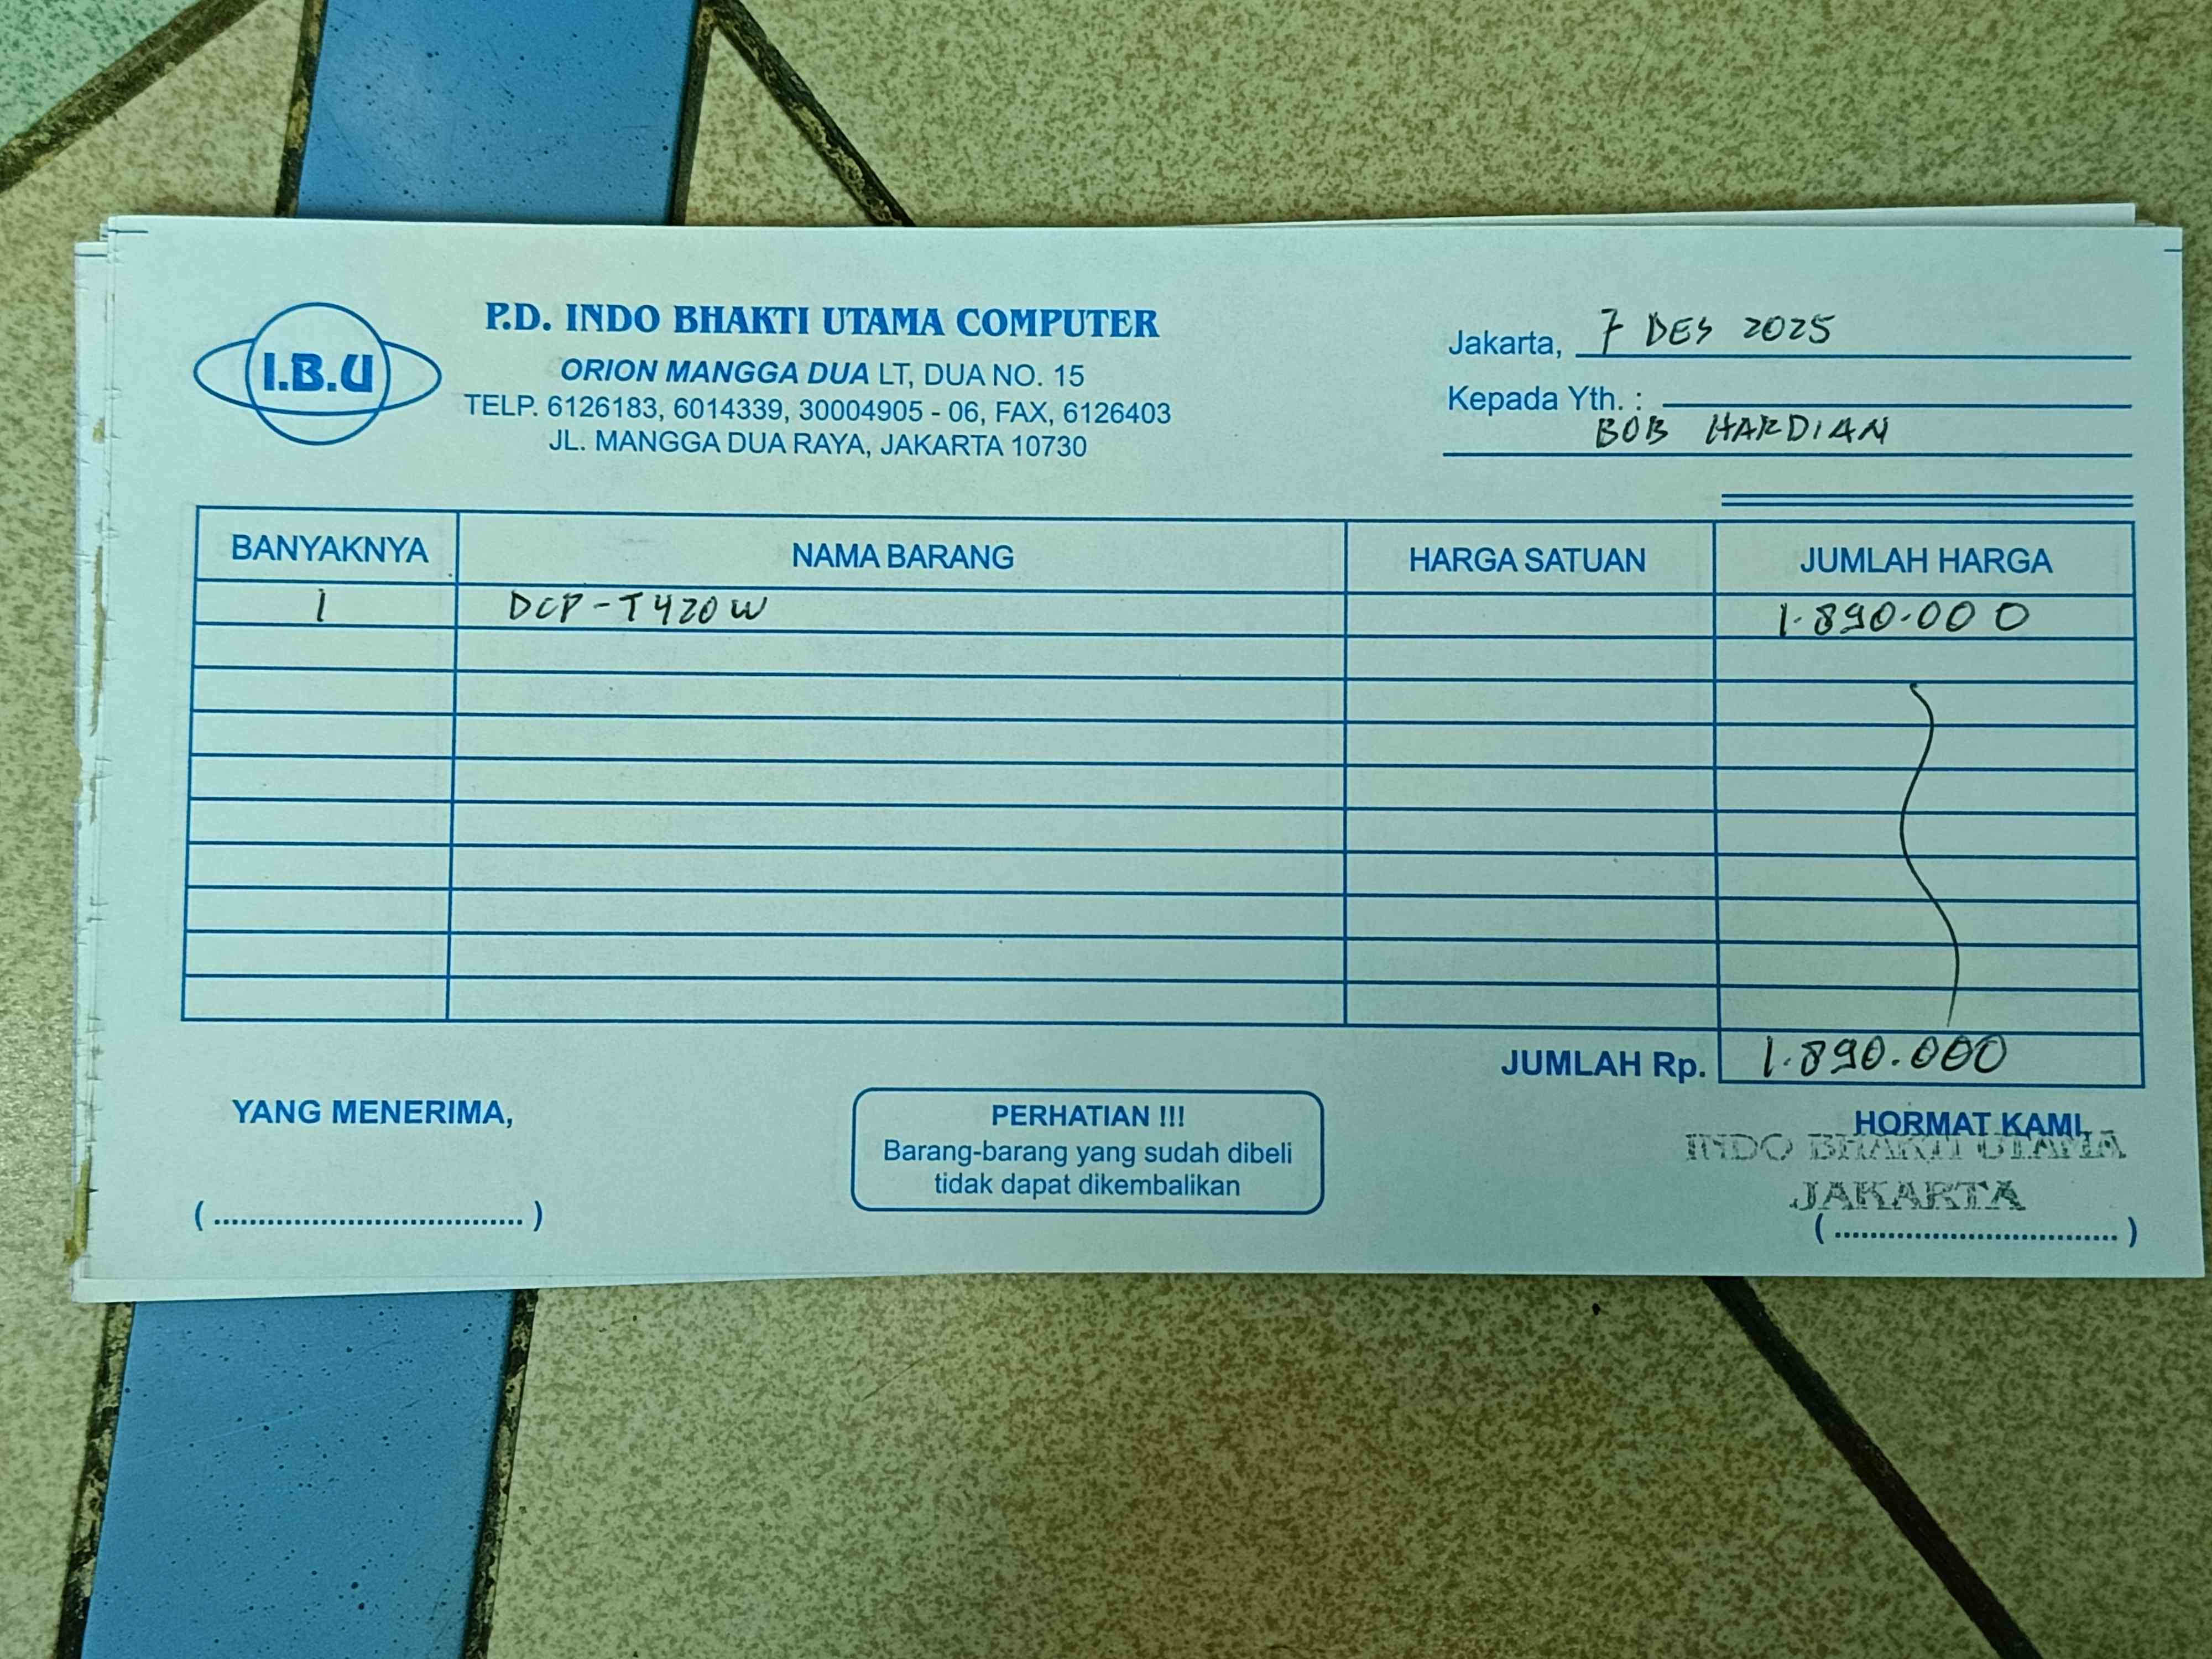 I.B.U
P.D. INDO BHAKTI UTAMA COMPUTER
ORION MANGGA DUA LT, DUA NO. 15
TELP. 6126183, 6014339, 30004905 - 06, FAX, 6126403
JL. MANGGA DUA RAYA, JAKARTA 10730
Jakarta, 7 DES 2025
Kepada Yth. :
BOB HARDIAN
BANYAKNYA NAMA BARANG HARGA SATUAN JUMLAH HARGA
1 DCP-T420W 1.890.000
JUMLAH Rp. 1.890.000
YANG MENERIMA,
(..................................)
PERHATIAN !!!
Barang-barang yang sudah dibeli
tidak dapat dikembalikan
HORMAT KAMI,
INDO BHAKTI UTAMA
JAKARTA
(................................)